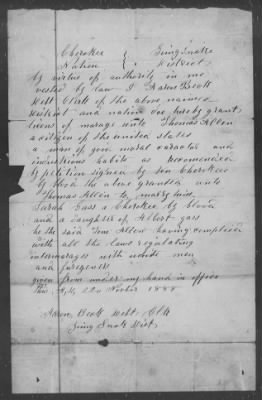 Cherokee Going Snake
Nation District
By virtue of authority in me
vested by law I Aaron Beott
Dist Clerk of the above named
District and nation doe hereby grant
licens of marage unto Thomas Allen
a citizen of the united states
a man of good maral caracter and
industrious habits as recomended
by petition signed by ten cherokees
by blood the above granted unto
Thomas Allen to marry miss
Sarah Gass a Cherokee by blood
and a daughter of Albert gass
he the said Tom Allen having complied
with all the laws regulating
intermarages with white men
and foregners
given from under my hand in office
This 22nd 1888
Aaron Beott Dist Clk
Going Snake Dist